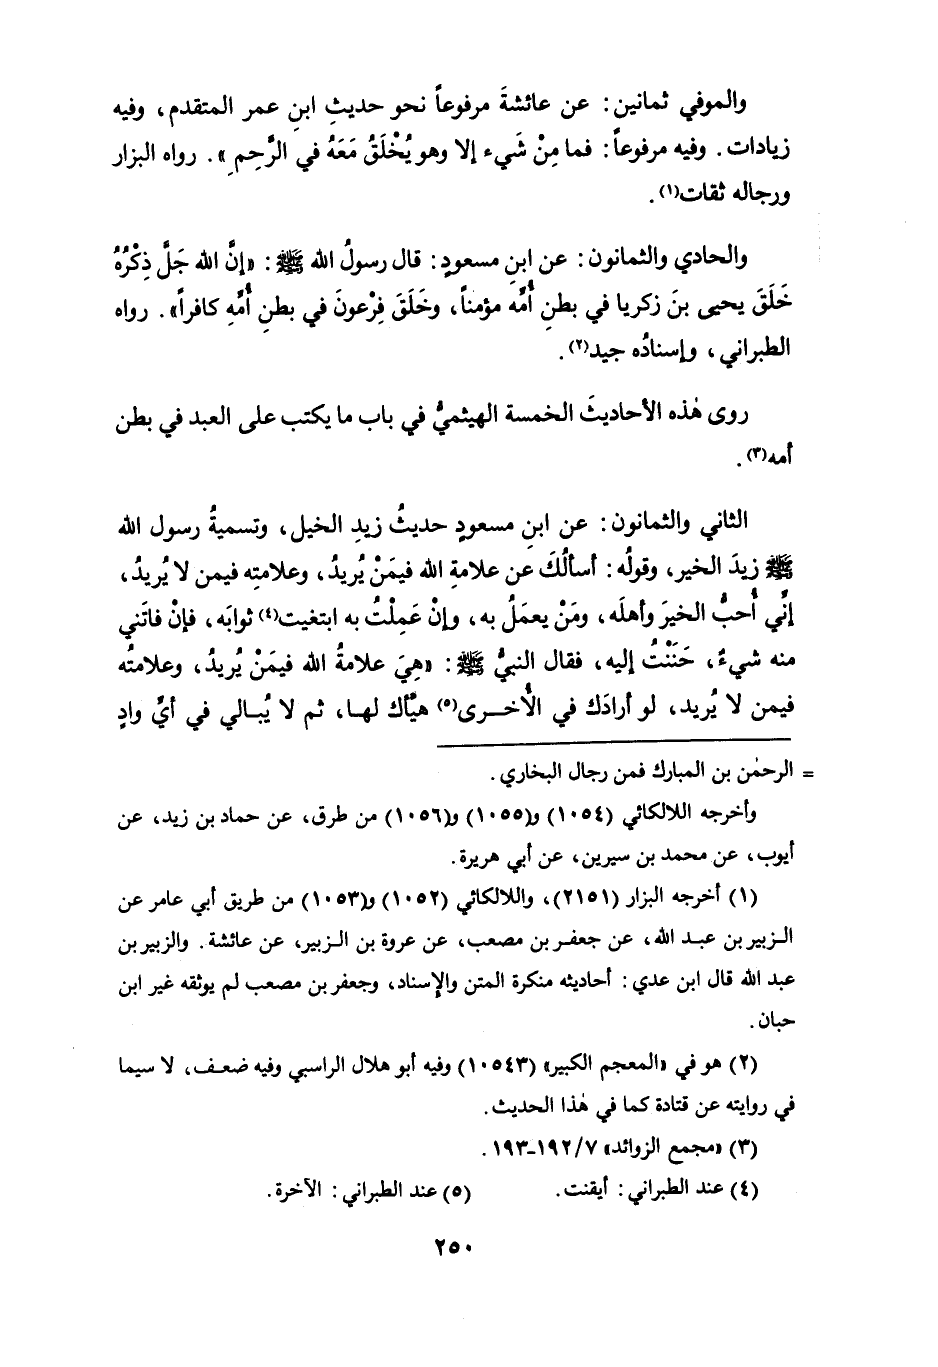 والموفي ثمانين : عن عائشةَ مرفوعاً نحو حديثِ ابنِ عمر المتقدم ، وفيه
زيادات . وفيه مرفوعاً : فما مِنْ شَيء إلا وهو يُخْلَقُ مَعَهُ في الرَّحِمِ » . رواه البزار
ورجاله ثقات(١) .
والحادي والثمانون : عن ابنِ مسعودٍ : قال رسولُ الله ﷺ : «إنَّ الله جَلَّ ذِكْرُهُ
خَلَقَ يحيى بنَ زكريا في بطنِ أُمِّه مؤمناً ، وخَلَقَ فِرْعونَ في بطنِ أُمِّهِ كافراً» . رواه
الطبراني ، وإسنادُه جيد(٢) .
روى هٰذه الأحاديثَ الخمسة الهيثميُّ في باب ما يكتب على العبد في بطن
أمه(٣) .
الثاني والثمانون : عن ابنِ مسعودٍ حديثُ زيدِ الخيل ، وتسميةُ رسول الله
ﷺ زيدَ الخير ، وقولُه : أسألُكَ عن علامةِ الله فيمَنْ يُريدُ ، وعلامتِه فيمن لا يُريدُ ،
إنِّي أُحبُّ الخيرَ وأهلَه ، ومَنْ يعمَلُ به ، وإنْ عَمِلْتُ به ابتغيت(٤) ثوابَه ، فإنْ فاتَني
منه شيءٌ ، حَنَنْتُ إليه ، فقال النبيُّ ﷺ : «هِيَ علامةُ الله فيمَنْ يُريدُ ، وعلامتُه
فيمن لا يُريد ، لو أرادَك في الأُخــرى(٥) هيَّأك لهـا ، ثم لا يُبـالي في أيِّ وادٍ
= الرحمٰن بن المبارك فمن رجال البخاري .
وأخرجه اللالكائي (١٠٥٤) و(١٠٥٥) و(١٠٥٦) من طرق ، عن حماد بن زيد ، عن
أيوب ، عن محمد بن سيرين ، عن أبي هريرة .
(١) أخرجه البزار (٢١٥١) ، واللالكائي (١٠٥٢) و(١٠٥٣) من طريق أبي عامر عن
الـزبير بن عبـد الله ، عن جعفـر بن مصعب ، عن عروة بن الـزبير ، عن عائشة . والزبير بن
عبد الله قال ابن عدي : أحاديثه منكرة المتن والإسناد ، وجعفر بن مصعب لم يوثقه غير ابن
حبان .
(٢) هو في «المعجم الكبير» (١٠٥٤٣) وفيه أبو هلال الراسبي وفيه ضعـف ، لا سيما
في روايته عن قتادة كما في هٰذا الحديث .
(٣) «مجمع الزوائد» ١٩٢/٧-١٩٣ .
(٤) عند الطبراني : أيقنت . (٥) عند الطبراني : الآخرة .
٢٥٠